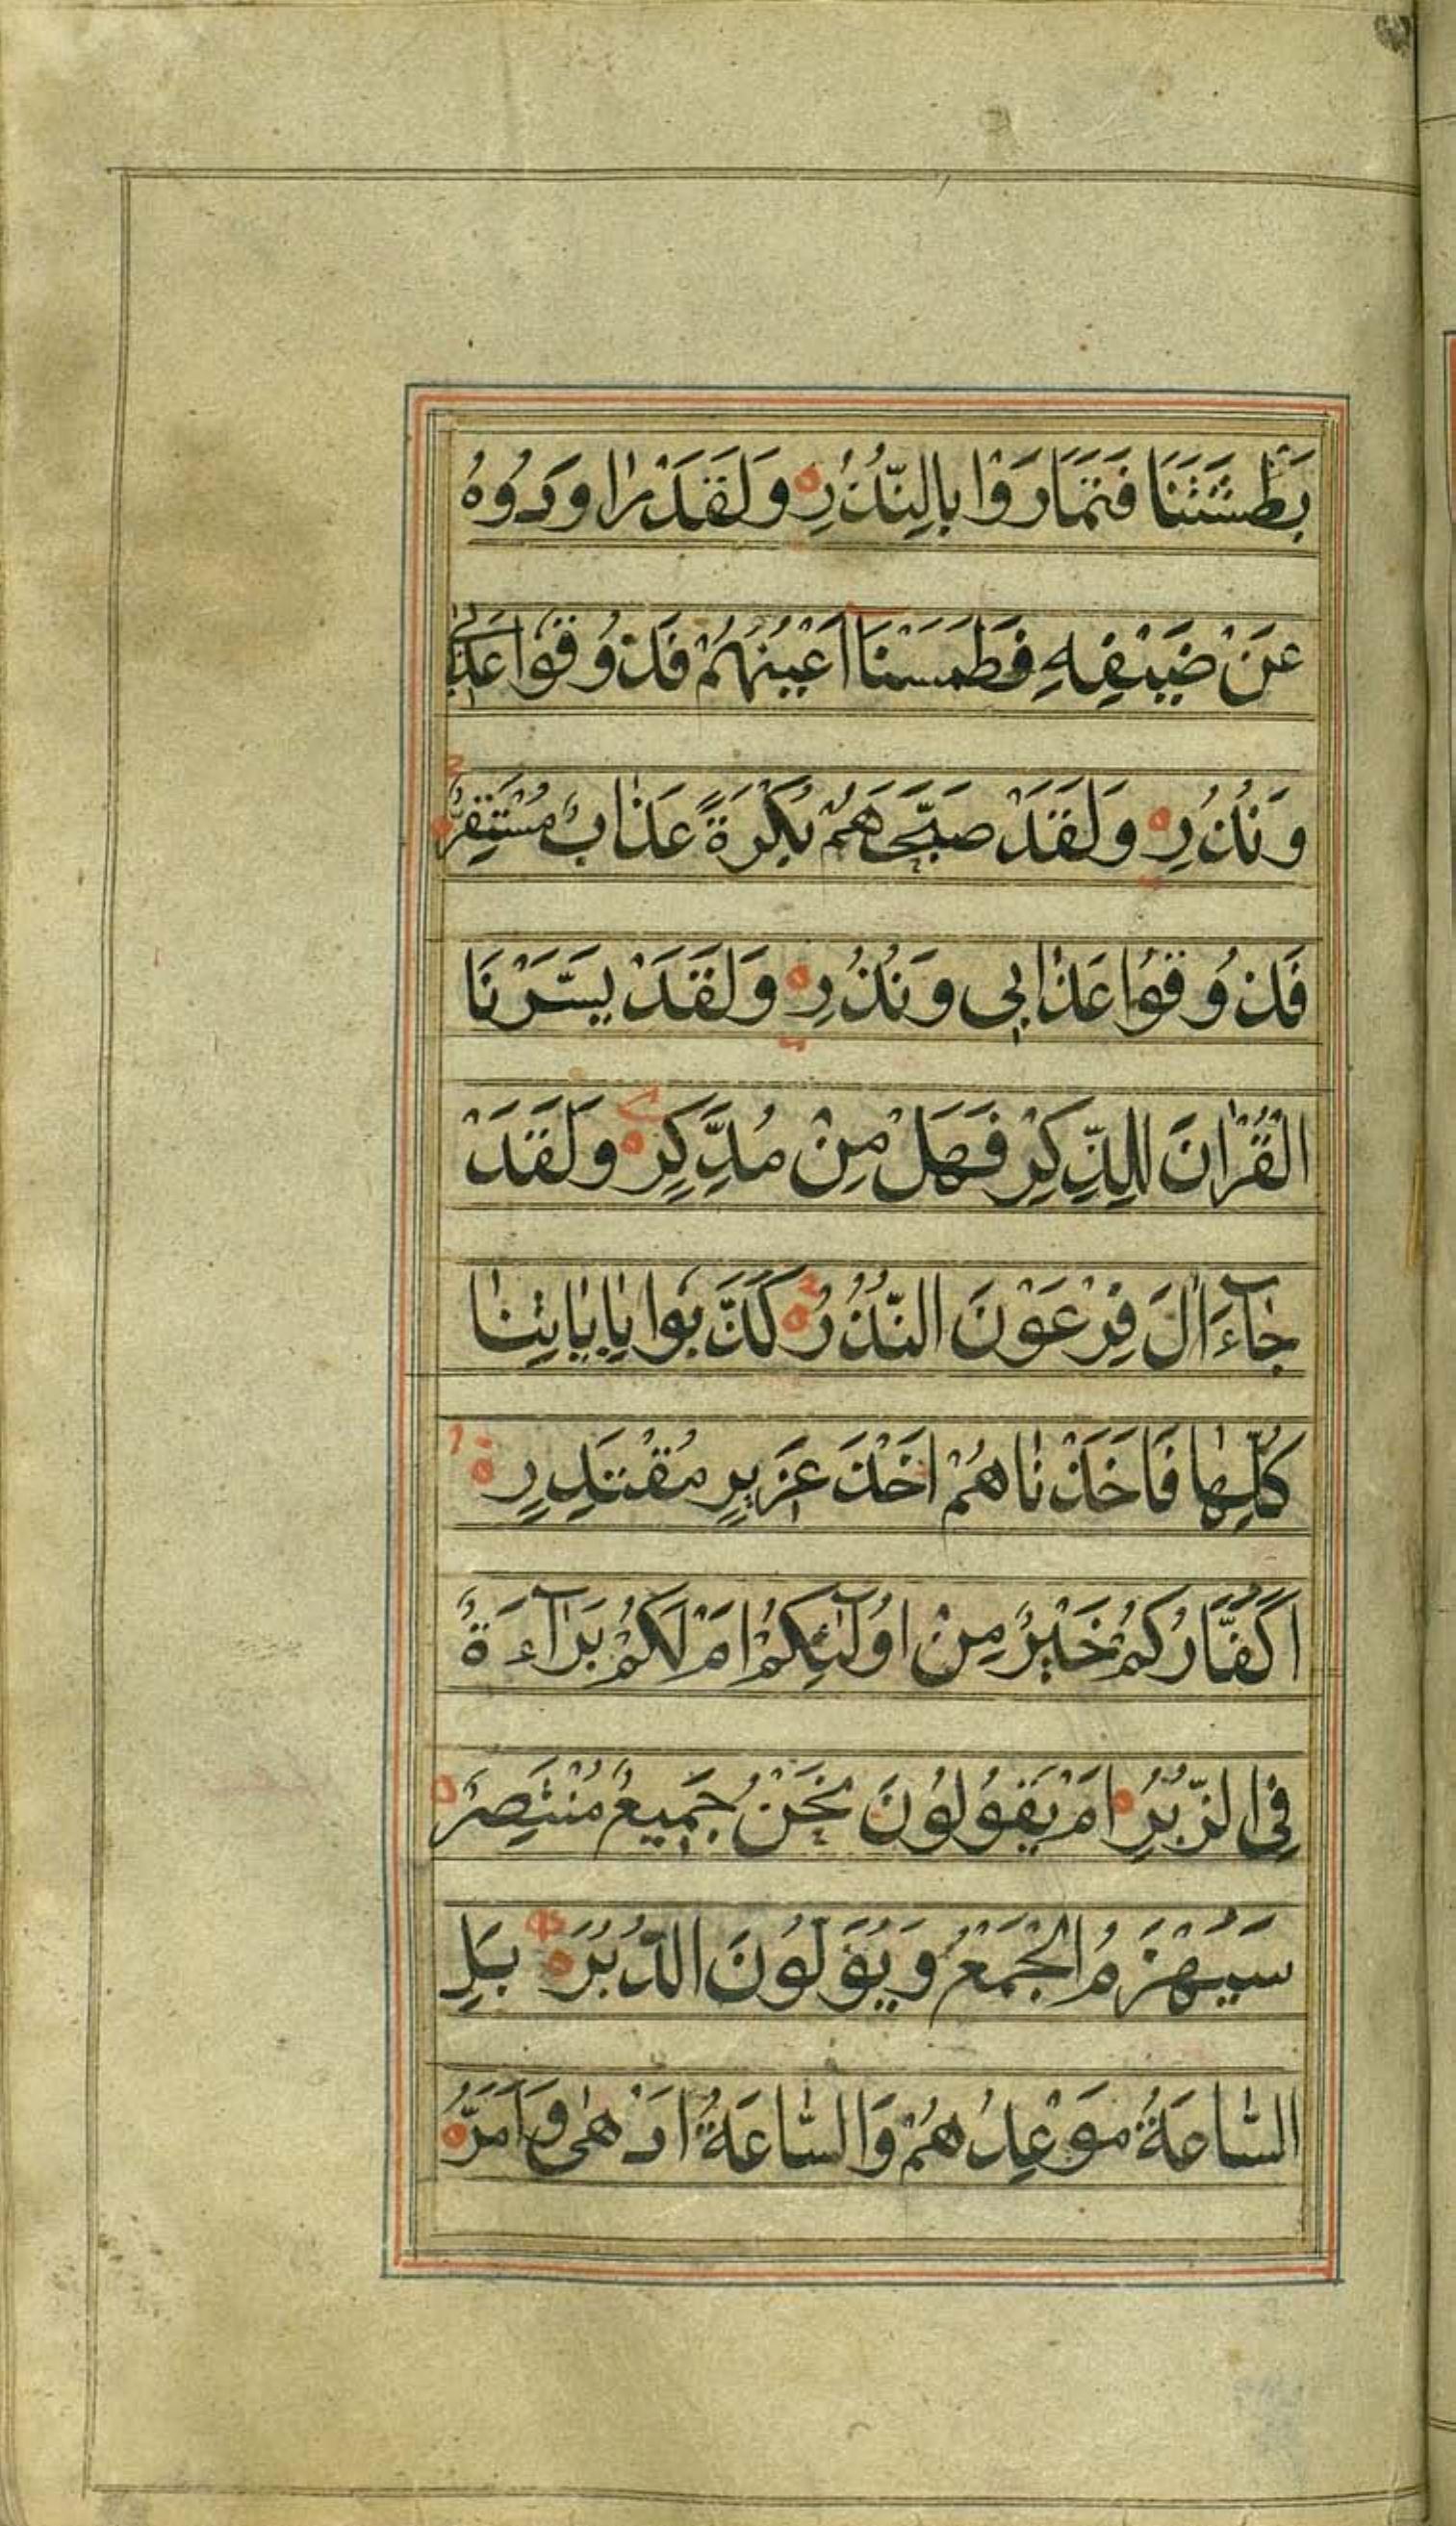 بَطْشَتَنَا فَتَمَارَوْا بِالنُّذُرِ وَلَقَدْ رَاوَدُوهُ
عَنْ ضَيْفِهِ فَطَمَسْنَا اَعْيُنَهُمْ فَذُوقُوا عَذَابِي
وَنُذُرِ وَلَقَدْ صَبَّحَهُمْ بُكْرَةً عَذَابٌ مُسْتَقِرٌّ
فَذُوقُوا عَذَابِى وَنُذُرِ وَلَقَدْ يَسَّرْنَا
الْقُرْاٰنَ لِلذِّكْرِ فَهَلْ مِنْ مُدَّكِرٍ وَلَقَدْ
جَآءَ اٰلَ فِرْعَوْنَ النُّذُرُ كَذَّبُوا بِاٰيَاتِنَا
كُلِّهَا فَاَخَذْنَاهُمْ اَخْذَ عَزِيزٍ مُقْتَدِرٍ
اَكُفَّارُكُمْ خَيْرٌ مِنْ اُولٰٓئِكُمْ اَمْ لَكُمْ بَرَآءَةٌ
فِى الزُّبُرِ اَمْ يَقُولُونَ نَحْنُ جَمِيعٌ مُنْتَصِرٌ
سَيُهْزَمُ الْجَمْعُ وَيُوَلُّونَ الدُّبُرَ بَلِ
السَّاعَةُ مَوْعِدُهُمْ وَالسَّاعَةُ اَدْهٰى وَاَمَرُّ